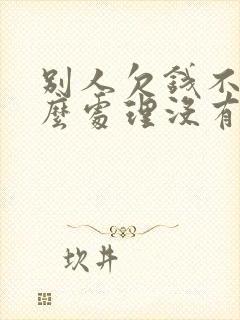 别人欠錢不
麼處理沒有
坎井